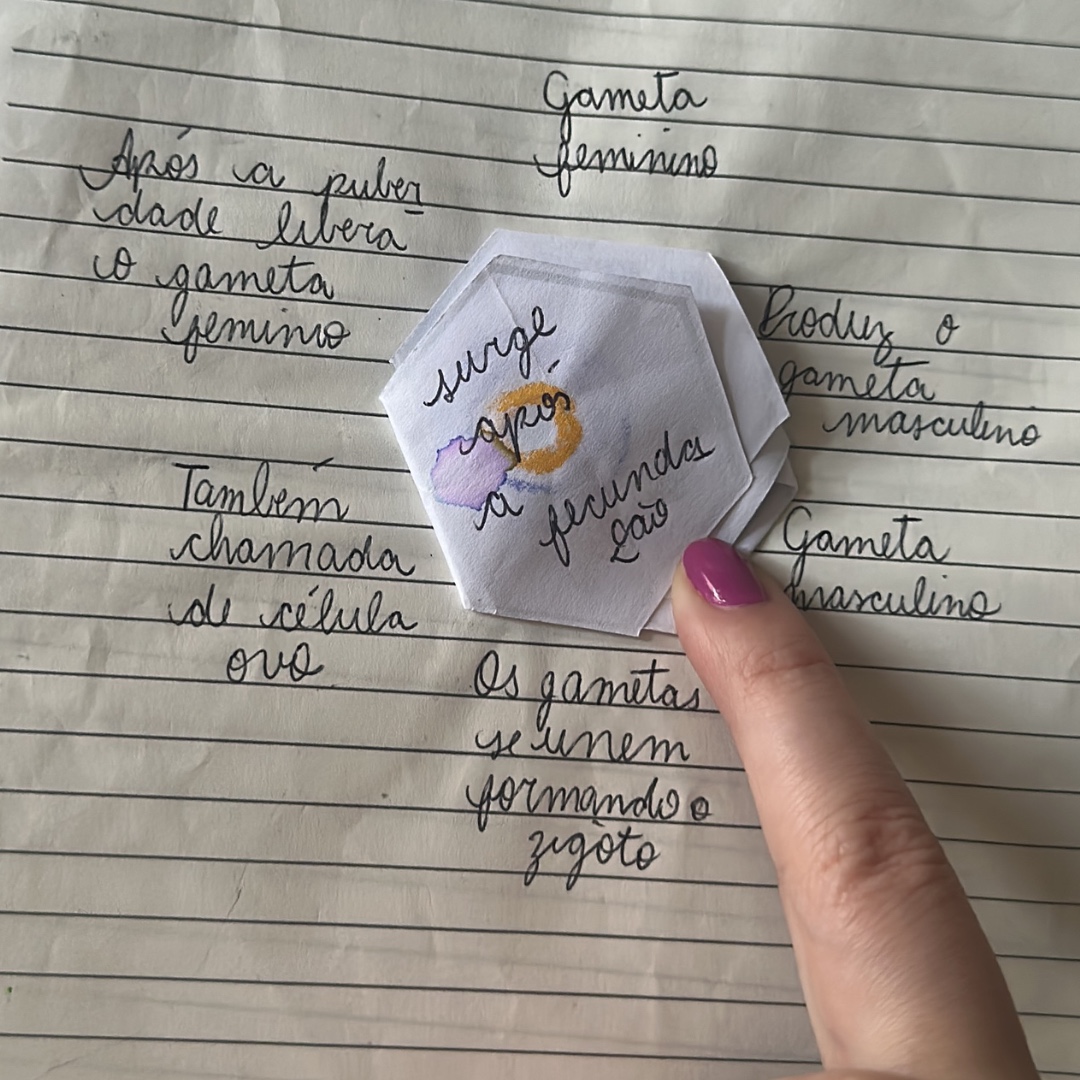 Gameta
feminino
Após a puber
dade libera
o gameta
feminio
surge
após
a fecunda
ção
Produz o
gameta
masculino
Também
chamada
de célula
ovo
Gameta
masculino
Os gametas
se unem
formando o
zigoto